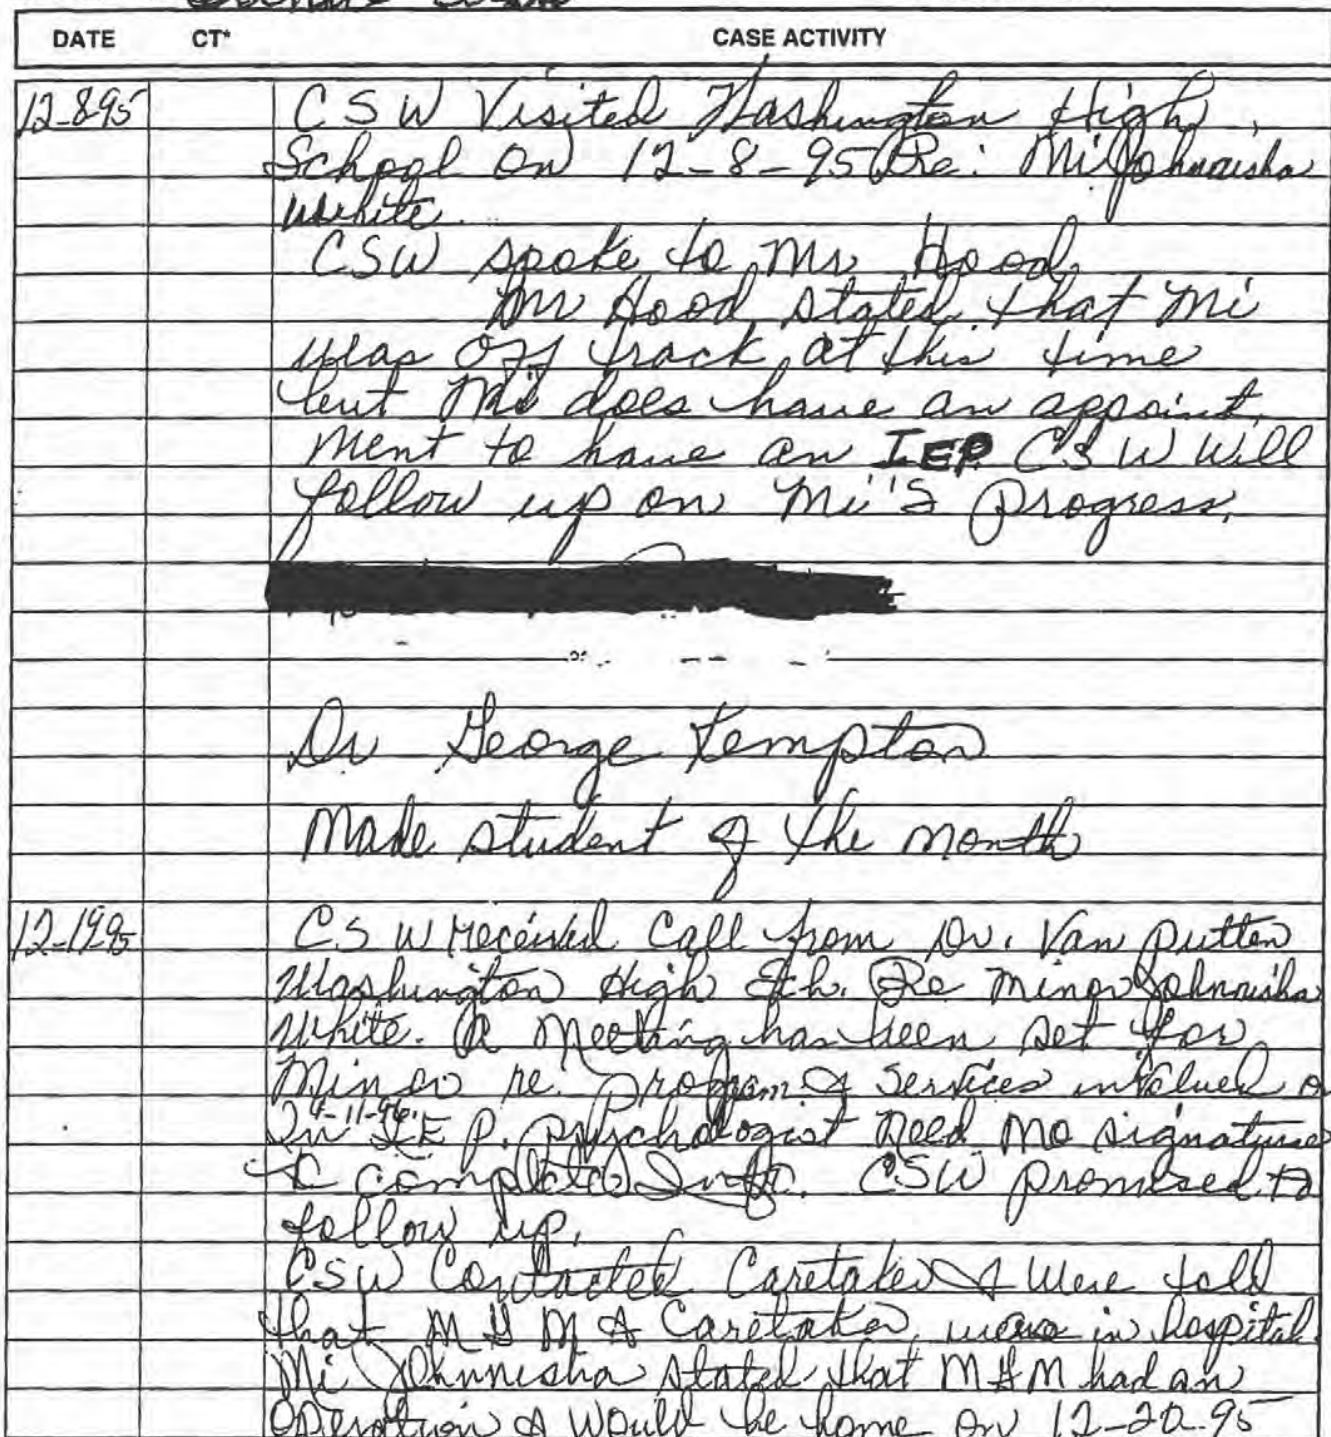 DATE CT* CASE ACTIVITY
12-8-95 CSW Visited Washington High
School on 12-8-95 Re: Mi Johnnisha
White.
CSW spoke to Mr. Hood
Mr Hood stated that Mi
was off track at this time
but Mi does have an appoint
ment to have an IEP. CSW Will
follow up on Mi's progress.
Dr George Kempton
Made student of the month
12-19-95 CSW received Call from Dr. Van Putten
Washington High Sch. Re Minor Johnnisha
White. A Meeting has been set for
Minor re. program & Services involved
4-11-96
In IEP. Psychologist need mo signature
& completed Info. CSW promised to
follow up.
CSW Contacted Caretaker & Were told
that M G M & Caretaker were in hospital.
Mi Johnnisha stated that MGM had an
operation & would be home on 12-20-95